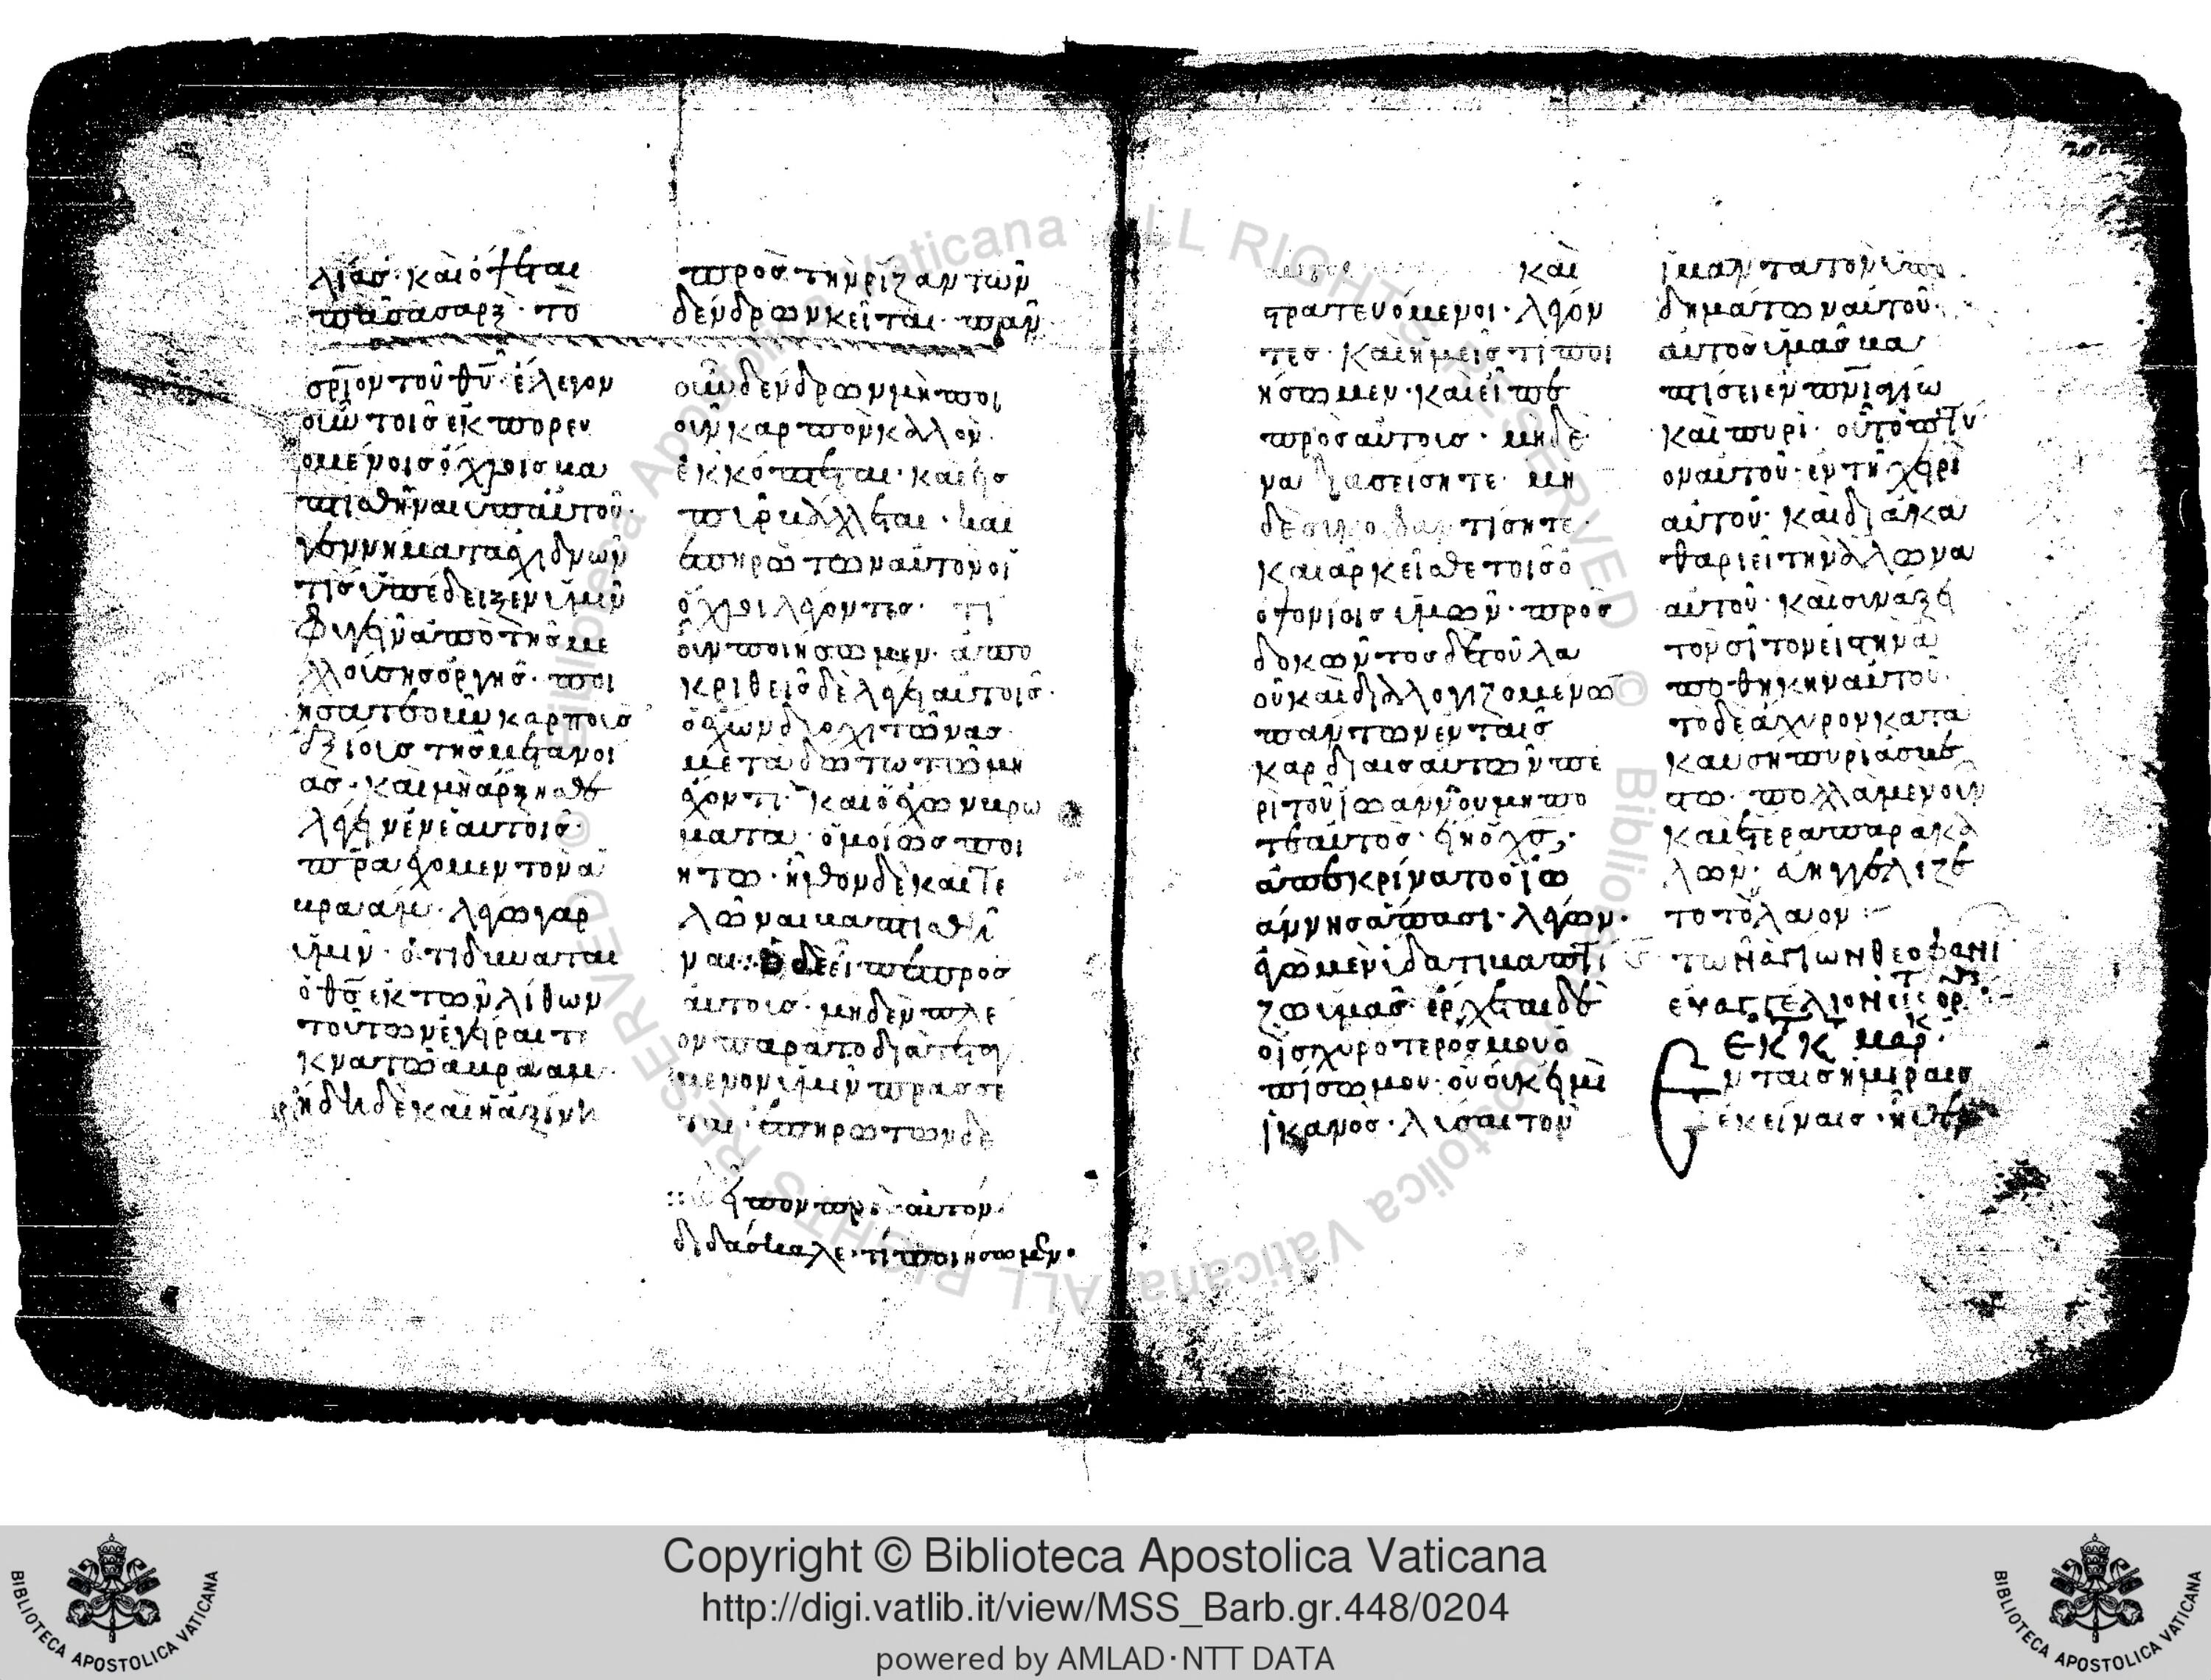 λίας· καὶ ὄψεται
πᾶσα σαρξ· τὸ
σρϊον τοῦ θυ· ἔλεγον
οὖν τοῖς ἐκπορευ
ομένοις ὄχλοις βα
πτισθῆναι ὑπ αὐτοῦ·
γεννήματα ἐχιδνῶν
τίς ὑπέδειξεν ὑμῖν
φυγεῖν ἀπὸ τῆς με
λλούσης ὀργῆς· ποι
ήσατε οὖν καρποὺς
ἀξίους τῆς μετανοι
ας· καὶ μὴ ἄρξησθε
λέγειν ἐν ἑαυτοῖς·
πρα ἔχομεν τὸν ἀ
βραάμ· λέγω γὰρ
ὑμῖν· ὅτι δύναται
ὁ θς ἐκ τῶν λίθων
τούτων ἐγεῖραι τε
κνα τῶ ἀβραάμ·
ἤδη δὲ καὶ ἡ ἀξίνη
πρὸς τὴν ρίζαν τῶν
δένδρων κεῖται· πᾶν
οὖν δένδρων μὴ ποι
οῦν καρπὸν καλὸν
ἐκκόπτεται· καὶ εἰς
πῦρ βάλλεται· και
ἐπηρώτων αὐτὸν οἱ
ὄχλοι λέγοντες· τί
οὖν ποιήσωμεν· ἀπο
κριθεὶς δὲ λέγει αὐτοῖς·
ὁ ἔχων δύο χιτῶνας
μεταδότω τῶ μὴ
ἔχοντι· καὶ ὁ ἔχων βρώ
ματα· ὁμοίως ποι
είτω· ἦλθον δὲ καὶ τε
λῶναι βαπτισθῆ
ναι· ὁ δὲ εἶπε πρὸς
αὐτούς· μηδὲν πλέ
ον παρὰ τὸ διατεταγ
μένον ὑμῖν πράσσε
ται· ἐπηρώτων δὲ
εἶπον πρὸς αὐτόν·
διδάσκαλε· τί ποιήσωμεν·
καὶ
στρατευόμενοι· λέγον
τες· καὶ ἡμεῖς τί ποι
ήσωμεν· καὶ εἶπε
πρὸς αὐτούς· μηδέ
να διασείσητε· μη
δὲ συκοφαντίσητε·
καὶ ἀρκεῖσθε τοῖς ὀ
ψονίοις ὑμῶν· προς
δοκῶντος δὲ τοῦ λα
οῦ καὶ διαλογιζομένων
πάντων ἐν ταῖς
καρδίαις αὐτῶν πε
ρὶ τοῦ ἰωάννου μήπο
τε αὐτὸς εἴη ὁ χς·
ἀπεκρίνατο ὁ ἰω
άννης ἅπασι· λέγων·
ἐγὼ μὲν ὕδατι βαπτί
ζω ὑμᾶς· ἔρχεται δὲ
ὁ ἰσχυρότερος μου ὀ
πίσω μου· οὗ οὐκ εἰμὶ
ἱκανὸς· λῦσαι τὸν
ἱμάντα τῶν ὑπο
δημάτων αὐτοῦ·
αὐτὸς ὑμᾶς βα
πτίσει ἐν πνι ἁγίω
καὶ πυρί· οὗ τὸ πτύ
ον αὐτοῦ· ἐν τῇ χειρὶ
αὐτοῦ· καὶ διακα
θαριεῖ τὴν ἅλωνα
αὐτοῦ· καὶ συνάξει
τὸν σῖτον εἰς τὴν ἀ
ποθήκην αὐτοῦ·
τὸ δὲ ἄχυρον κατα
καύση πυρὶ ἀσβέ
στω· πολλὰ μὲν οὖν
καὶ ἕτερα παρακα
λῶν· εὐηγγελίζε
το τὸν λαόν
τῶν ἁγίων θεοφανι
ευαγγέλιον εἰς τ ορ
ἐκ τ κ μαρ
Εν ταῖς ἡμέραις
ἐκείναις·
Copyright © Biblioteca Apostolica Vaticana
http://digi.vatlib.it/view/MSS_Barb.gr.448/0204
powered by AMLAD·NTT DATA
BIBLIOTECA APOSTOLICA VATICANA
BIBLIOTECA APOSTOLICA VATICANA
Biblioteca Apostolica Vaticana ALL RIGHTS RESERVED © Biblioteca Apostolica Vaticana ALL RIGHTS RESERVED ©